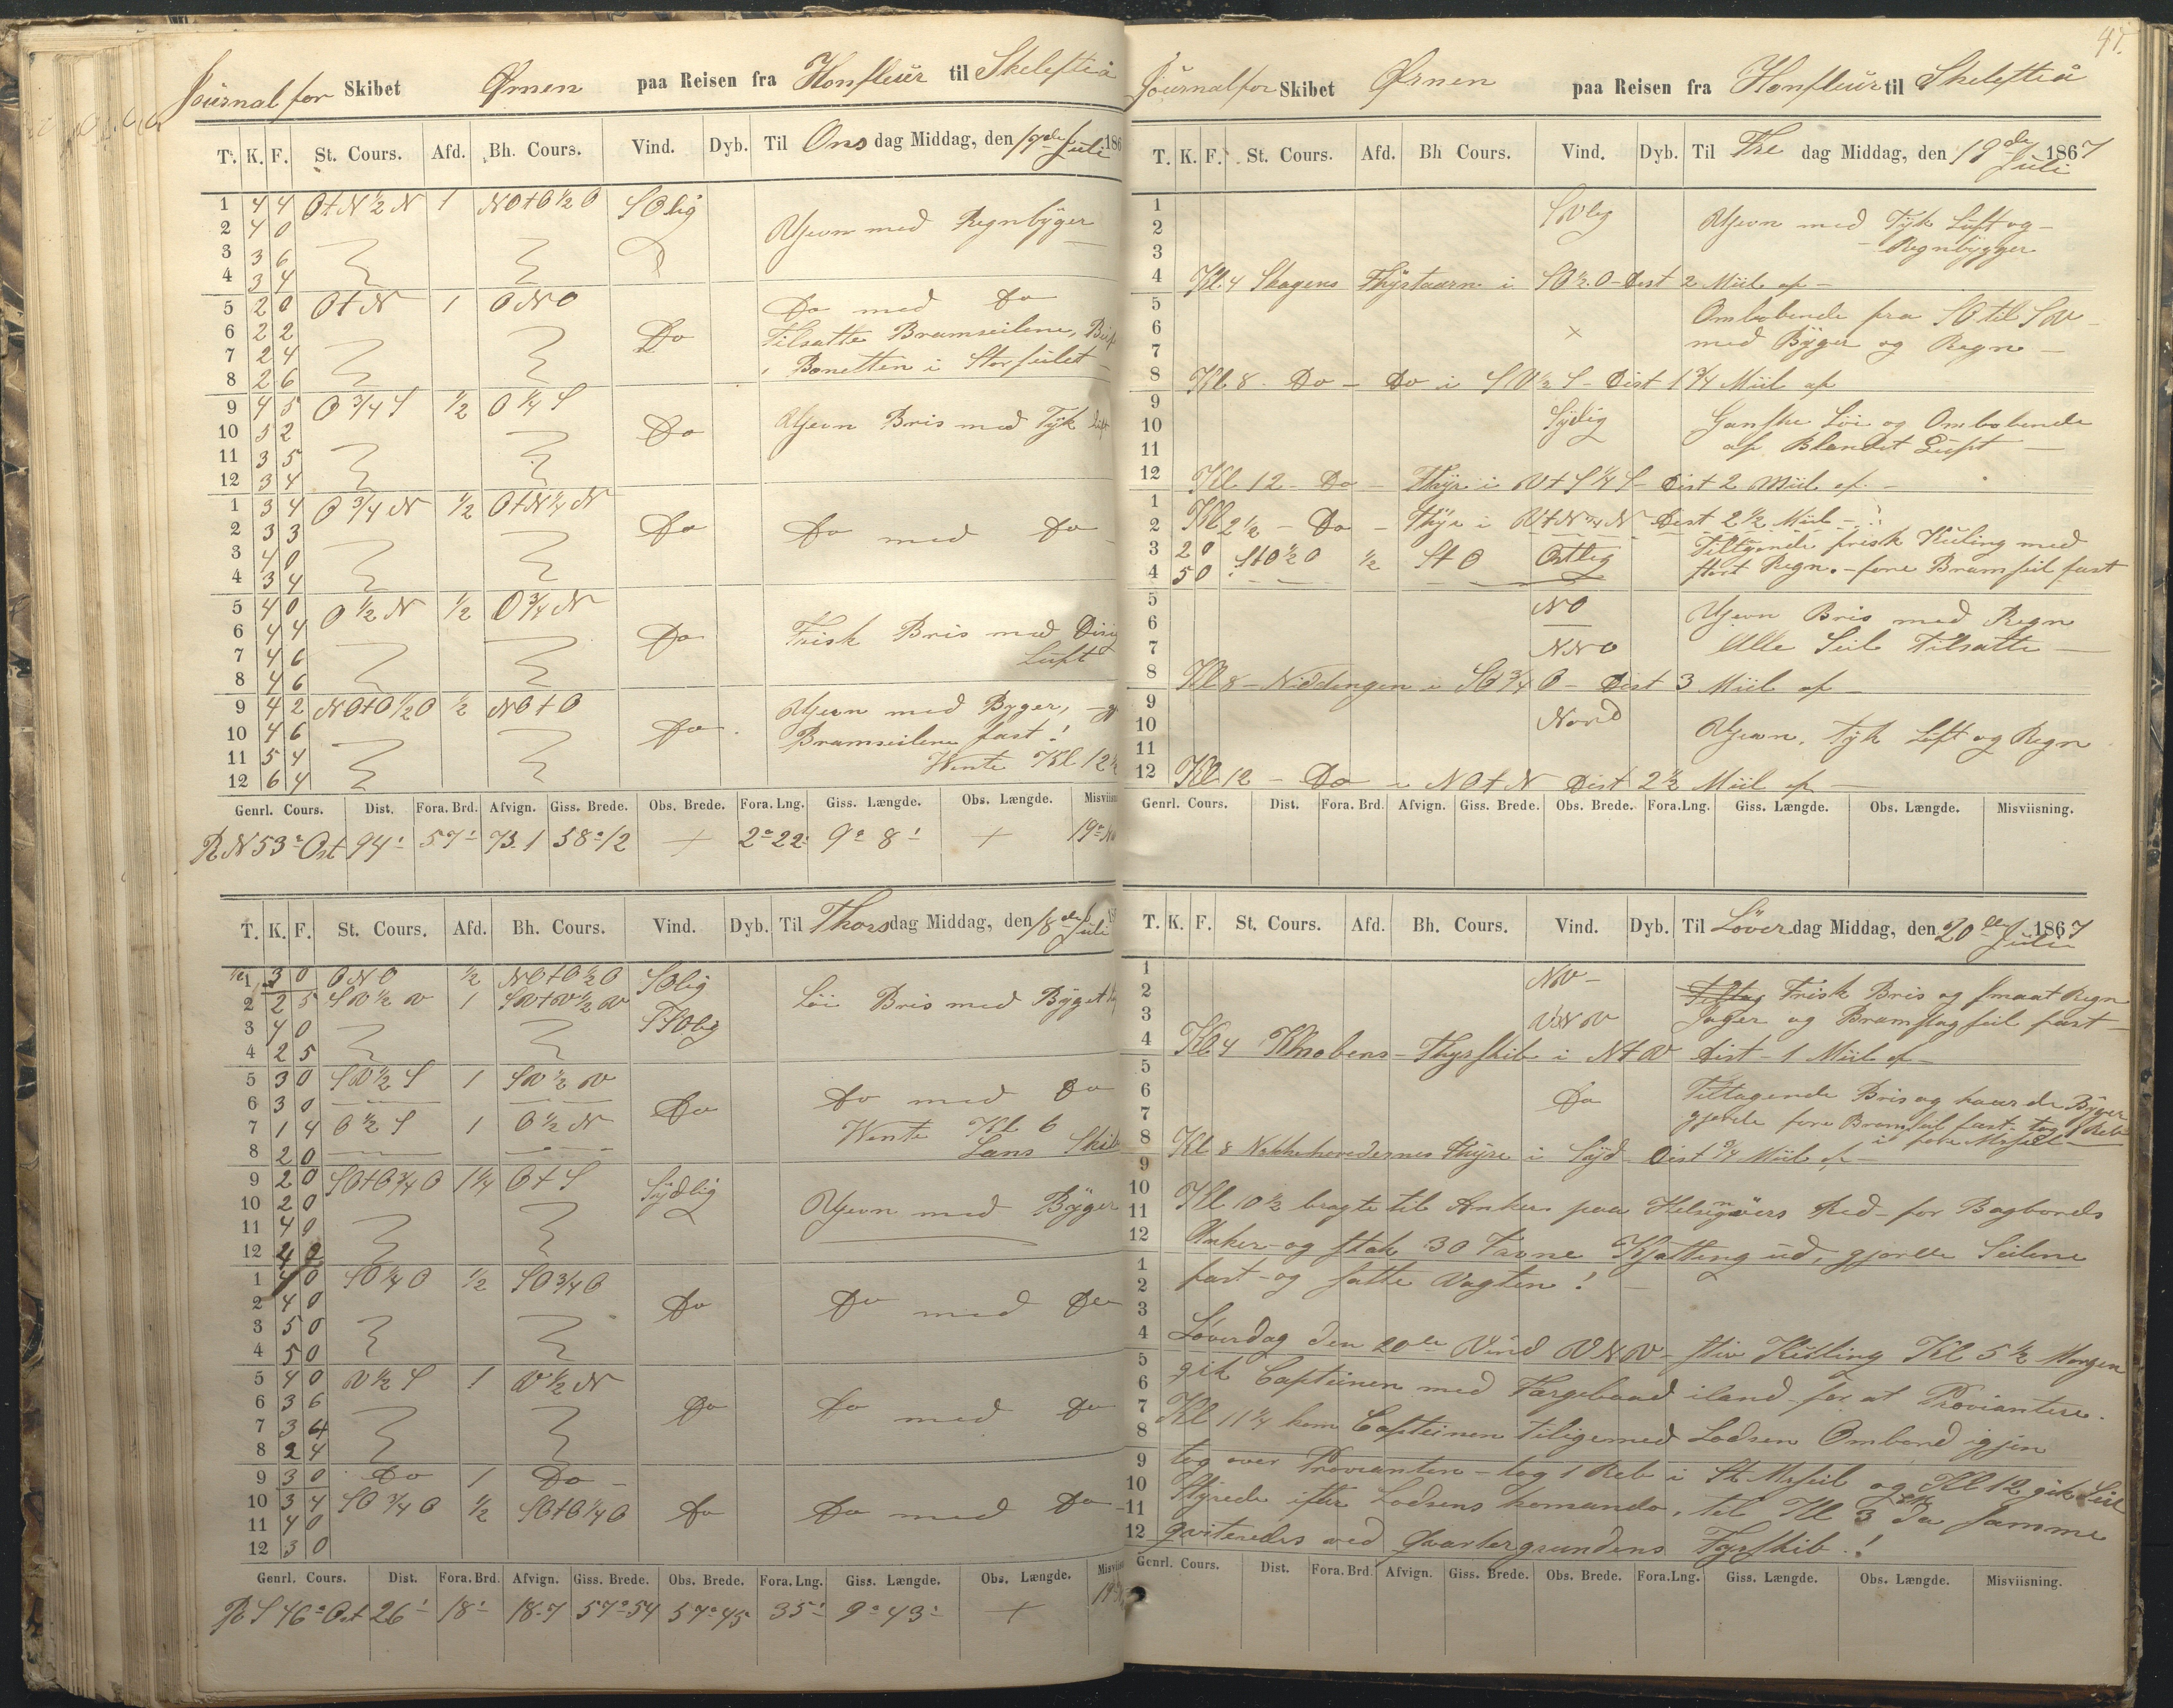 Journal for Skibet Ørnen paa Reisen fra Honfleur til Skelefteå
T. K. F. St. Cours. Afd. Bh. Cours. Vind. Dyb. Til Onsdag Middag, den 17de Juli 186
1 4 4 OtN ½ N 1 NOtO ½ O SOlig
2 4 0 Gjevn med Regnbyger
3 3 6
4 3 4
5 2 0 OtN 1 ONO Do med Do
6 2 2 Do Tilsatte Bramseilene,
7 2 4 Bonetten i Storseilet
8 2 6
9 4 5 O ¾ S ½ O ¼ S
10 5 2 Do Gjevn Bris med Tyk Luft
11 3 5
12 3 4
1 3 4 O ¾ N ½ OtN ¼ N
2 3 3 Do Do med Do
3 4 0
4 3 4
5 4 0 O ½ N ½ O ¾ N
6 4 4 Do Frisk Bris med
7 4 6 Luft
8 4 6
9 4 2 NOtO ½ O ½ NOtO Gjevn med Byger,
10 4 6 Do Bramseilene fast!
11 5 4 Vente Kl 12 ½
12 6 4
Genrl. Cours. Dist. Fora. Brd. Afvign. Giss. Brede. Obs. Brede. Fora. Lng. Giss. Længde. Obs. Længde. Misviisn
R N 53° Ost 94' 57' 73.1 58° 12 + 2° 22' 9° 8' + 19°
T. K. F. St. Cours. Afd. Bh. Cours. Vind. Dyb. Til Thorsdag Middag, den 18de Juli
1 3 0 ONO ½ NOtO ½ O SOlig
2 2 5 SV ½ V 1 SVtV ½ V Löi Bris med Byget
3 4 0 SSOlig
4 2 5
5 3 0 SV ½ S 1 SV ½ V
6 3 0 Do Do med Do
7 1 4 O ½ S 1 O ½ N Vente Kl 6
8 2 0 Lans
9 2 0 SOtO ¾ O 1 ¼ OtS Sydlig
10 2 0 Gjevn med Byger
11 4 0
12 4 2
1 4 0 SO ¼ O ½ SO ¾ O
2 4 0 Do Do med Do
3 5 0
4 5 0
5 4 0 V ½ S 1 V ½ N
6 3 6 Do Do med Do
7 3 4
8 2 4
9 3 0 Do 1 Do
10 3 4 SO ¾ O ½ SOtO ¼ O Do Do med Do
11 4 0
12 3 0
Genrl. Cours. Dist. Fora. Brd. Afvign. Giss. Brede. Obs. Brede. Fora. Lng. Giss. Længde. Obs. Længde. Misviisn
R S 46° Ost 26' 18' 18.7 57° 54 57° 45 35' 9° 43' + 19°
47.
Journal for Skibet Ørnen paa Reisen fra Honfleur til Skelefteå
T. K. F. St. Cours. Afd. Bh Cours. Vind. Dyb. Til Fre dag Middag, den 19de Juli 1867
1 SVlig Gjevn med Tyk Luft og
2 Regnbygger
3
4 Kl 4 Skagens Fhyrtaarn i SO ½ O - Dist 2 Miil af -
5 Ombobende fra SO til SV
6 med Byger og Regn -
7
8 Kl 8 - Do - Do i SV ½ S - Dist 1 ¾ Miil af
9 Sydlig Ganske Löi og Ombobende
10 af Blandet Luft -
11
12 Kl 12 - Do - Fhyr i VtS ¼ S - Dist 2 Miil af -
1
2 Kl 2 ½ - Do - Fhyr i VtN ¾ N - Dist 2 ½ Miil -
3 2 0 StO ½ O ½ StO Ostlig Tiltagende frisk Kuling med
4 5 0 stort Regn. - fore Bramseil fast
5 NO Gjevn Bris med Regn
6 Alle Seil Tilsatte -
7 NNO
8 Kl 8 - Niddingen i SO ¾ O - Dist 3 Miil af -
9 Nord
10 Gjevn, Tyk Luft og Regn
11
12 Kl 12 - Do - i NOtN Dist 2 ½ Miil af -
Genrl. Cours. Dist. Fora. Brd. Afvign. Giss. Brede. Obs. Brede. Fora. Lng. Giss. Længde. Obs. Længde. Misviisning.
T. K. F. St. Cours. Afd. Bh. Cours. Vind. Dyb. Til Löverdag Middag, den 20de Juli 1867
1 NV - Tiltag Frisk Bris og smaat Regn
2 Jager og Bramstagseil fast -
3 VNV
4 Kl 4 Knobens - Fhyrskib i NtV Dist - 1 Miil af -
5 Tiltagende Bris og haarde Byger
6 Do gjorde fore Bramseil fast - tog 1 Reb
7 i fore Mrseil -
8 Kl 8 Nakkehovedernes Fhyre i Syd - Dist ¾ Miil af -
9
10 Kl 10 ½ bragte til Ankers paa Helsignöers Red - for Bagbords
11 Anker - og stak 30 Favne Kjætting ud, gjorde Seilene
12 fast - og satte Vagten! -
1
2
3 Löverdag den 20de Vind VNV - stiv Kuling Kl 5 ½ Morgen
4 gik Capteinen med Færgebaad iland - for at Proviantere.
5 Kl 11 ¼ kom Capteinen tiligemed Lodsen Ombord igjen
6 tog over Provianten - tog 1 Reb i St. Mrseil og Kl 12 gik Seil
7 Styrede efter Lodsens komando, til Kl 3 EM da samme
8 qviteredes ved Qvartergrundens Fyrskib.!
9
10
11
12
Genrl. Cours. Dist. Fora. Brd. Afvign. Giss. Brede. Obs. Brede. Fora. Lng. Giss. Længde. Obs. Længde. Misviisning.